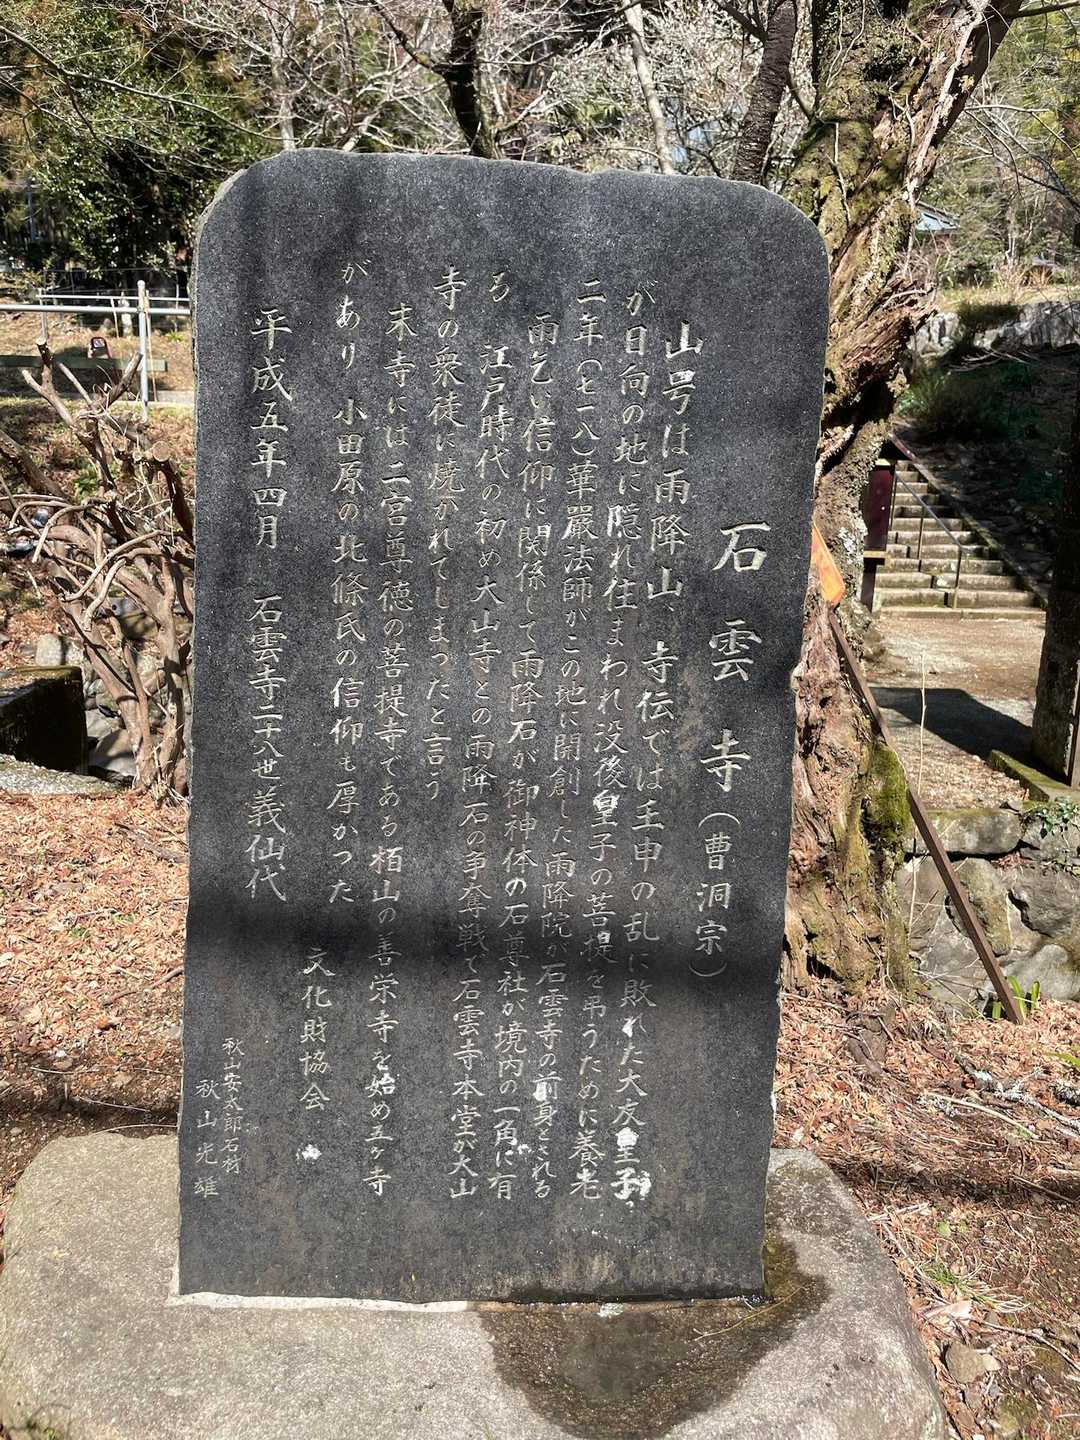 石雲寺(曹洞宗)
山号は雨降山、寺伝では壬申の乱に敗れた大友皇子
が日向の地に隠れ住まわれ没後皇子の菩提を弔うために養老
二年(七一八)華嚴法師がこの地に開創した雨降院が石雲寺の前身とされる
雨乞い信仰に関係して雨降石が御神体の石尊社が境内の一角に有
る
江戸時代の初め大山寺との雨降石の争奪戦で石雲寺本堂が大山
寺の衆徒に焼かれてしまったと言う
末寺には二宮尊徳の菩提寺である栢山の善栄寺を始め五ヶ寺
があり 小田原の北條氏の信仰も厚かった
文化財協会
平成五年四月 石雲寺二十八世義仙代
秋山安太郎石材
秋山光雄